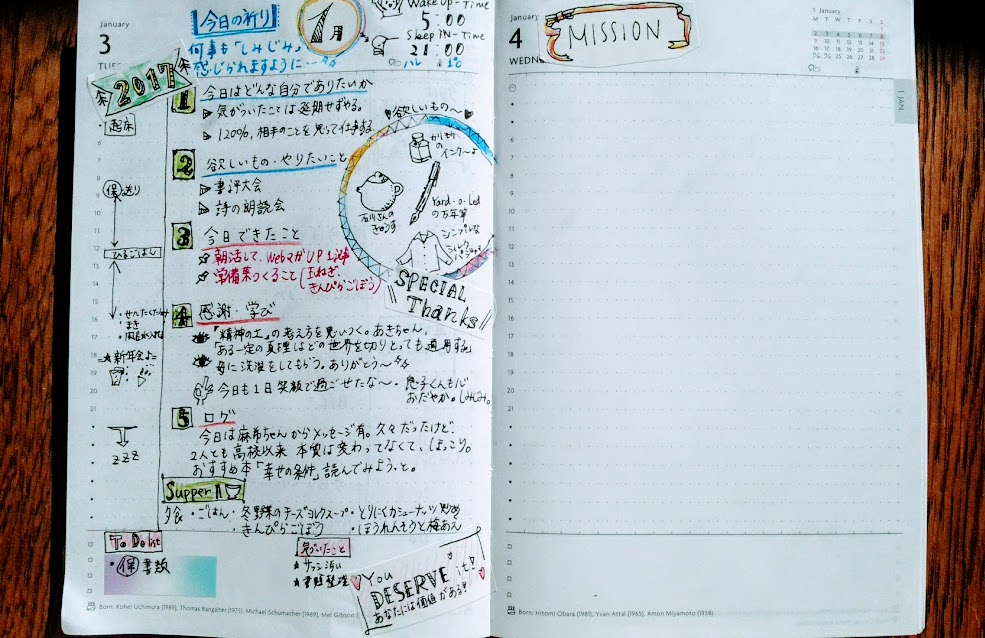 January
3
TUES
2017
今日の祈り
何事も「しみじみ」
感じられますように…
1月
Wake up-Time
5:00
Sleep iN-Time
21:00
ハレ
1 今日はどんな自分でありたいか
気がついたことは延期せずやる。
120%、相手のことを思って仕事する
2 欲しいもの・やりたいこと
書評大会
詩の朗読会
3 今日できたこと
朝活して、WebマガUP
常備菜つくること(玉ねぎ、
きんぴらごぼう)
欲しいもの〜
の
インク〜
石川さんの
きゅうす
Yard-o-Led
の万年筆
シンプルな
シルク
SPECIAL
Thanks
4 感謝・学び
「精神の土」の考え方を思いつく。あきちゃん、
「ある一定の真理はどの世界を切りとっても適用する」
母に洗濯をしてもらう。ありがとう〜
今日も1日笑顔で過ごせたな〜・息子くんも心
おだやか。しみじみ。
5 ログ
今日は麻希ちゃんからメッセージ有。久々だったけど
2人とも高校以来 本質は変わってなくて、ほっこり。
おすすめ本「幸せの条件」読んでみよっと。
Supper
夕食・ごはん・冬野菜のチーズミルクスープ・とりにくカシューナッツ炒め
・きんぴらごぼう ・ほうれんそうと梅あえ
起床
保 送り
ひるごはん
・せんたくたたみ
・まき
新年会♪
zzz
8
9
10
11
12
13
14
15
16
17
18
19
20
21
To Do list
・保 書類
気づいたこと
★サッシ汚い
★書類整理
You
DESERVE it!
あなたには価値がある!
Born: Kohei Uchimura (1989), Thomas Bangalter (1975), Michael Schumacher (1969), Mel Gibson
January
4
WEDN
MISSION
1 January
M T W T F S S
1 JAN
6
7
8
9
10
11
12
13
14
15
16
17
18
19
20
21
Born: Hitomi Obara (1981), Yvan Attal (1965), Amon Miyamoto (1958)